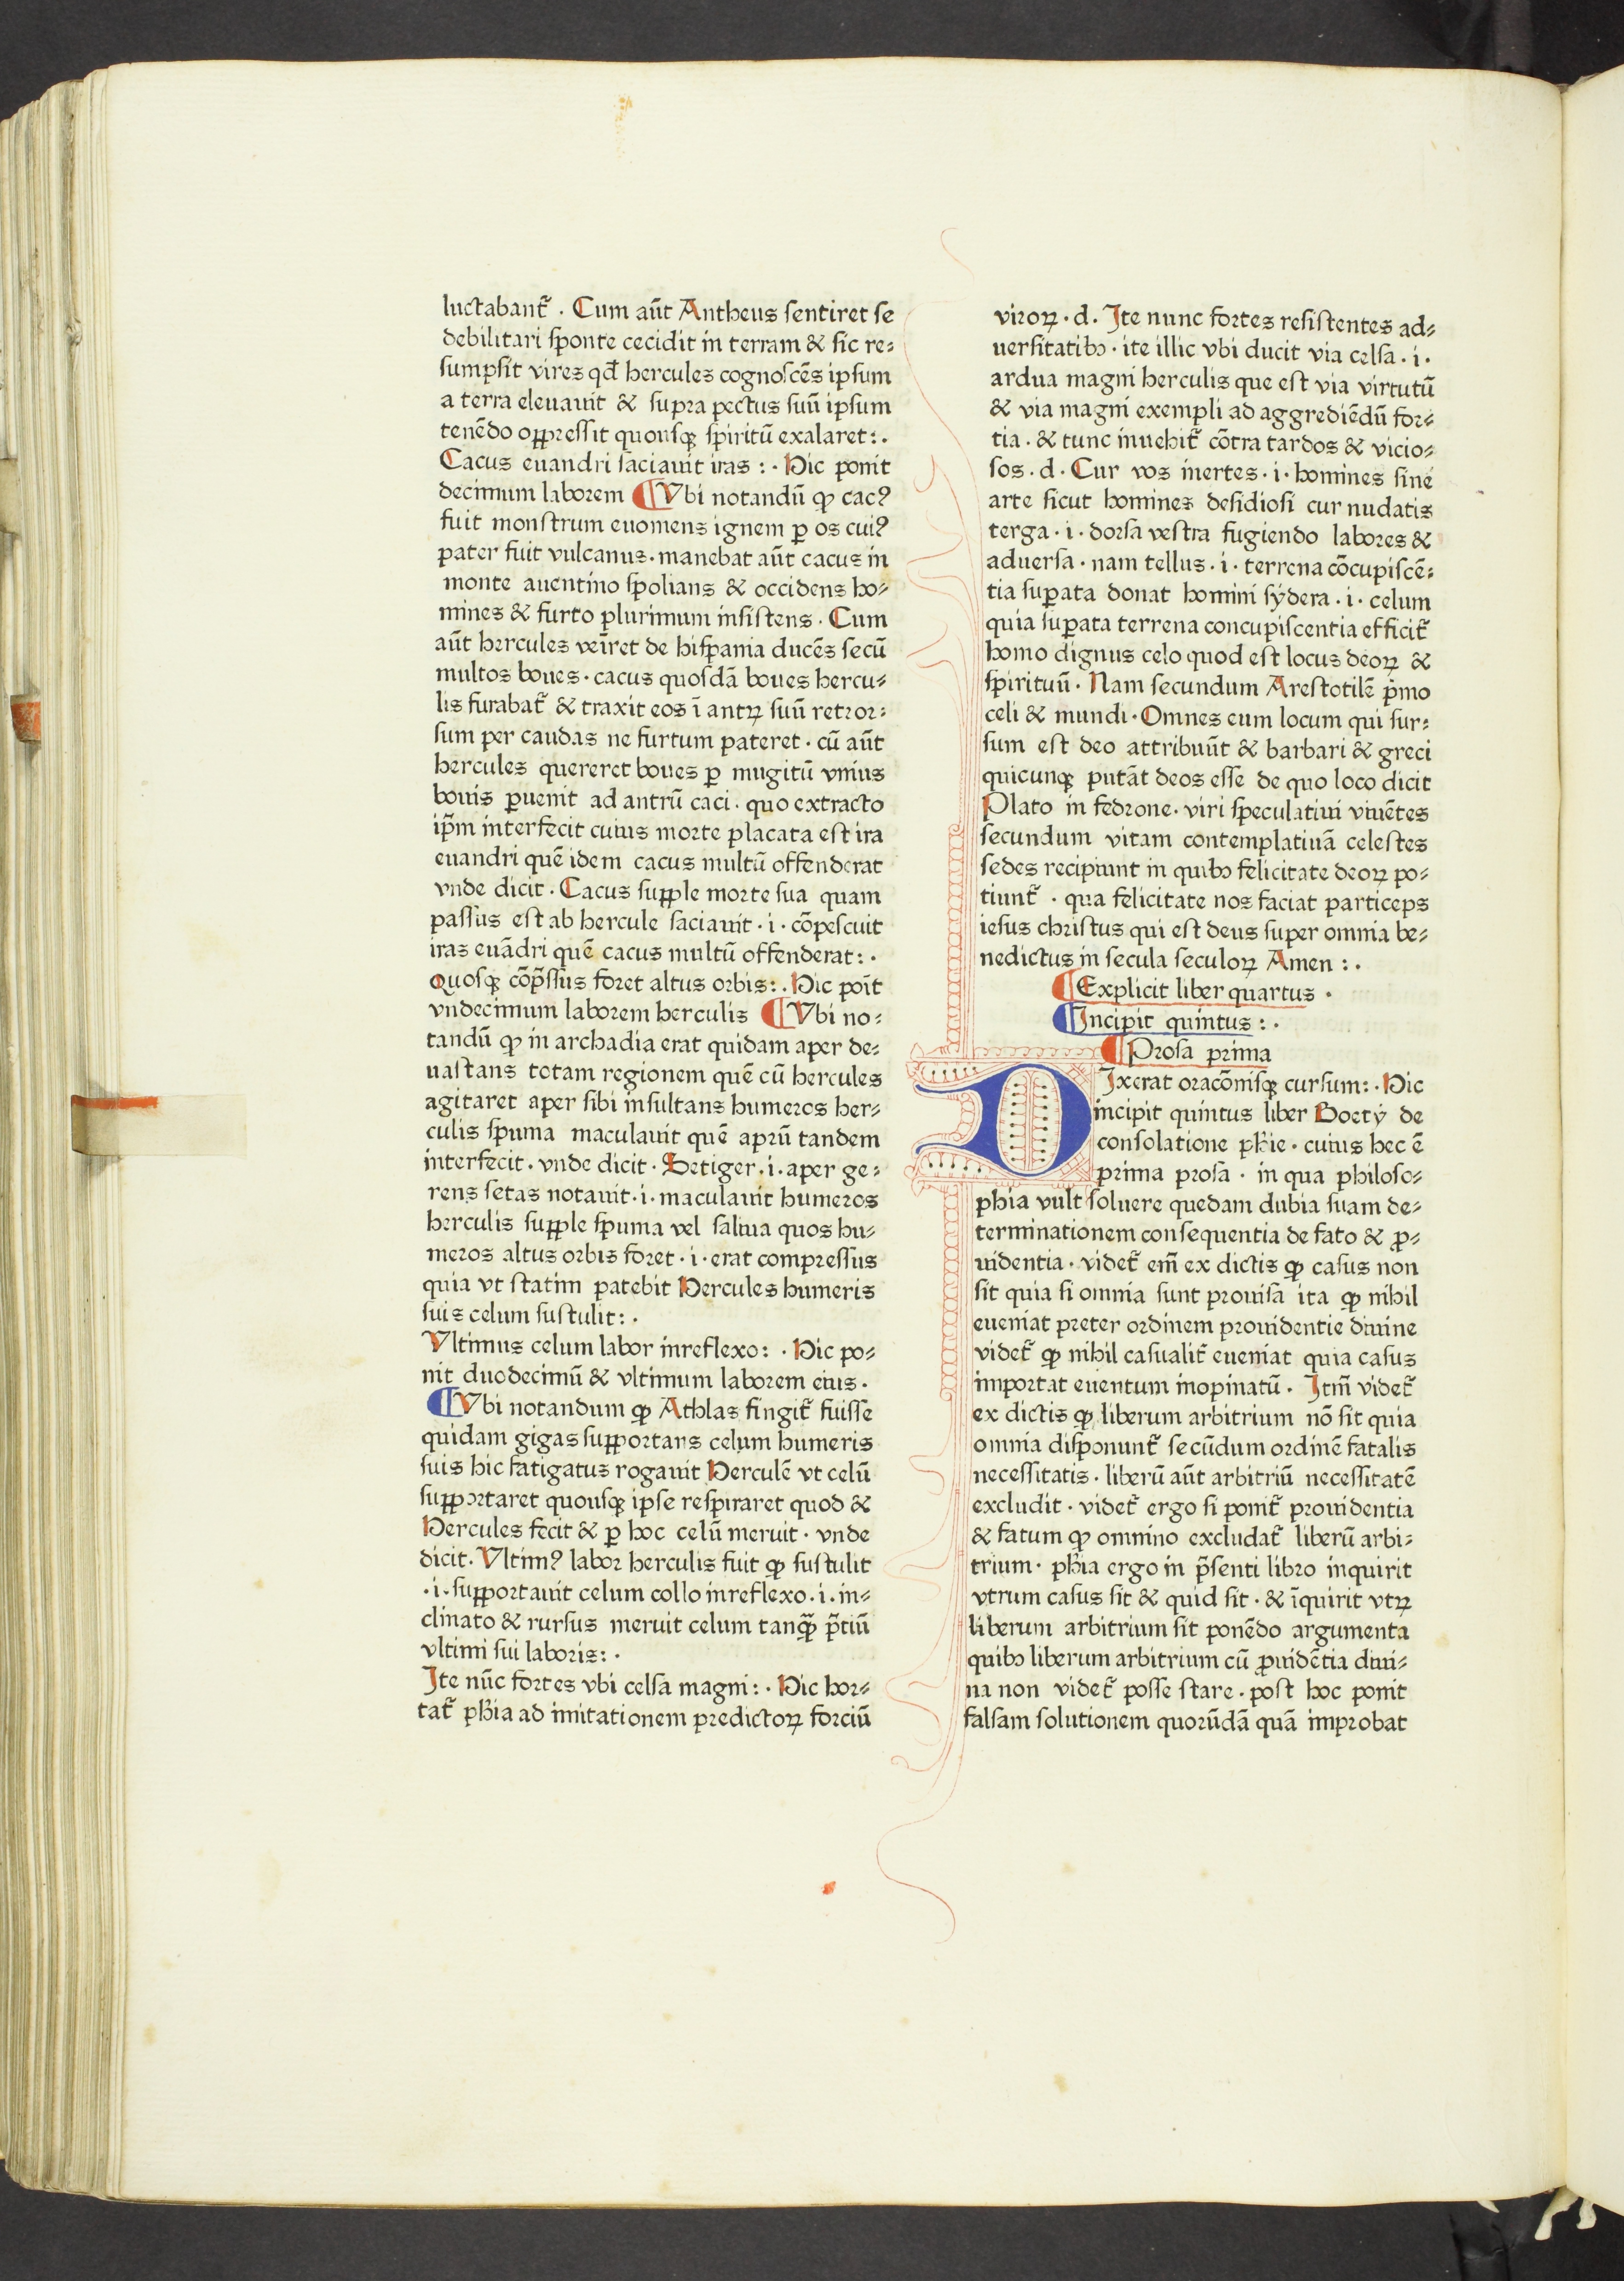 luctabant᷑ . Cum aūt Antheus ſentiret ſe
debilitari ſponte cecidit in terram & ſic re⸗
ſumpſit vires qđ hercules cognoſcēs ipſum
a terra eleuauit & ſupra pectus ſuū ipſum
tenēdo oppreſſit quouſqꝫ ſpiritū exalaret : .
Cacus euandri ſaciauit iras : . Hic ponit
decimum laborem ¶ Vbi notandū ꝙ cacꝰ
fuit monſtrum euomens ignem ꝑ os cuiꝰ
pater fuit vulcanus . manebat aūt cacus in
monte auentino ſpolians & occidens ho⸗
mines & furto plurimum inſiſtens . Cum
aūt hercules veīret de hiſpania ducēs ſecū
multos boues . cacus quoſdā boues hercu⸗
lis furabat᷑ & traxit eos ī antꝝ ſuū retror⸗
ſum per caudas ne furtum pateret . cū aūt
hercules quereret boues ꝑ mugitū vnius
bouis ꝑuenit ad antrū caci . quo extracto
ip̄m interfecit cuius morte placata eſt ira
euandri quē idem cacus multū offenderat
vnde dicit . Cacus ſupple morte ſua quam
paſſus eſt ab hercule ſaciauit . i . cōpeſcuit
iras euādri quē cacus multū offenderat : .
Quoſqꝫ cōp̄ſſus foret altus orbis : . Hic poīt
vndecimum laborem herculis ¶ Vbi no⸗
tandū ꝙ in archadia erat quidam aper de⸗
uaſtans totam regionem quē cū hercules
agitaret aper ſibi inſultans humeros her⸗
culis ſpuma maculauit quē aprū tandem
interfecit . vnde dicit . Setiger . i . aper ge⸗
rens ſetas notauit . i . maculauit humeros
herculis ſupple ſpuma vel ſaliua quos hu⸗
meros altus orbis foret . i . erat compreſſus
quia vt ſtatim patebit Hercules humeris
ſuis celum ſuſtulit : .
Vltimus celum labor inreflexo : . Hic po⸗
nit duodecimū & vltimum laborem eius .
¶ Vbi notandum ꝙ Athlas fingit᷑ fuiſſe
quidam gigas ſupportans celum humeris
ſuis hic fatigatus rogauit Herculē vt celū
ſupportaret quouſqꝫ ipſe reſpiraret quod &
Hercules fecit & ꝑ hoc celū meruit . vnde
dicit . Vltimꝰ labor herculis fuit ꝙ ſuſtulit
. i . ſupportauit celum collo inreflexo . i . in⸗
clinato & rurſus meruit celum tanꝙ̄ p̄tiū
vltimi ſui laboris : .
Ite nūc fortes vbi celſa magni : . Hic hor⸗
tat᷑ ph̄ia ad imitationem predictoꝝ forciū
viroꝝ . d . Ite nunc fortes reſiſtentes ad⸗
uerſitatibꝫ . ite illic vbi ducit via celſa . i .
ardua magni herculis que eſt via virtutū
& via magni exempli ad aggrediēdū for⸗
tia . & tunc inuehit᷑ cōtra tardos & vicio⸗
ſos . d . Cur vos inertes . i . homines ſine
arte ſicut homines deſidioſi cur nudatis
terga . i . dorſa veſtra fugiendo labores &
aduerſa . nam tellus . i . terrena cōcupiſcē⸗
tia ſuꝑata donat homini ſẏdera . i . celum
quia ſuꝑata terrena concupiſcentia efficit᷑
homo dignus celo quod eſt locus deoꝝ &
ſpirituū . Nam ſecundum Areſtotilē p̄mo
celi & mundi . Omnes eum locum qui ſur⸗
ſum eſt deo attribuūt & barbari & greci
quicunqꝫ putāt deos eſſe de quo loco dicit
Plato in fedrone . viri ſpeculatiui viuētes
ſecundum vitam contemplatiuā celeſtes
ſedes recipiunt in quibꝫ felicitate deoꝝ po⸗
tiunt᷑ . qua felicitate nos faciat particeps
ieſus chriſtus qui eſt deus ſuper omnia be⸗
nedictus in ſecula ſeculoꝝ Amen : .
¶ Explicit liber quartus .
¶ Incipit quintus : .
¶ Proſa prima
DIxerat oracōniſqꝫ curſum : . Hic
incipit quintus liber Boetẏ de
conſolatione ph̄ie . cuius hec ē
prima proſa . in qua philoſo⸗
phia vult ſoluere quedam dubia ſuam de⸗
terminationem conſequentia de fato & ꝓ⸗
uidentia . videt᷑ em̄ ex dictis ꝙ caſus non
ſit quia ſi omnia ſunt prouiſa ita ꝙ nihil
eueniat preter ordinem prouidentie diuine
videt᷑ ꝙ nihil caſualit᷑ eueniat quia caſus
importat euentum inopinatū . Itm̄ videt᷑
ex dictis ꝙ liberum arbitrium nō ſit quia
omnia diſponunt᷑ ſecūdum ordinē fatalis
neceſſitatis . liberū aūt arbitriū neceſſitatē
excludit . videt᷑ ergo ſi ponit᷑ prouidentia
& fatum ꝙ omnino excludat᷑ liberū arbi⸗
trium . ph̄ia ergo in p̄ſenti libro inquirit
vtrum caſus ſit & quid ſit . & īquirit vtꝝ
liberum arbitrium ſit ponēdo argumenta
quibꝫ liberum arbitrium cū ꝓuidētia diui⸗
na non videt᷑ poſſe ſtare . poſt hoc ponit
falſam ſolutionem quorūdā quā improbat